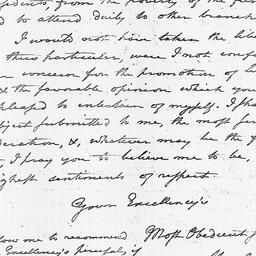 from, the poverty of the
to attend daily to other branch
I would not have taken the libe
thus particular, were I not conf
concern for the promotion of
& the favorable opinion which you
pleased to entertain of myself. I sha
submitted to me, the most
&, whatever may be the
I pray you to believe me to be,
highest sentiments of respect.
Your Excellency's
me to recommend Most Obedient
Excellency's perusal, if